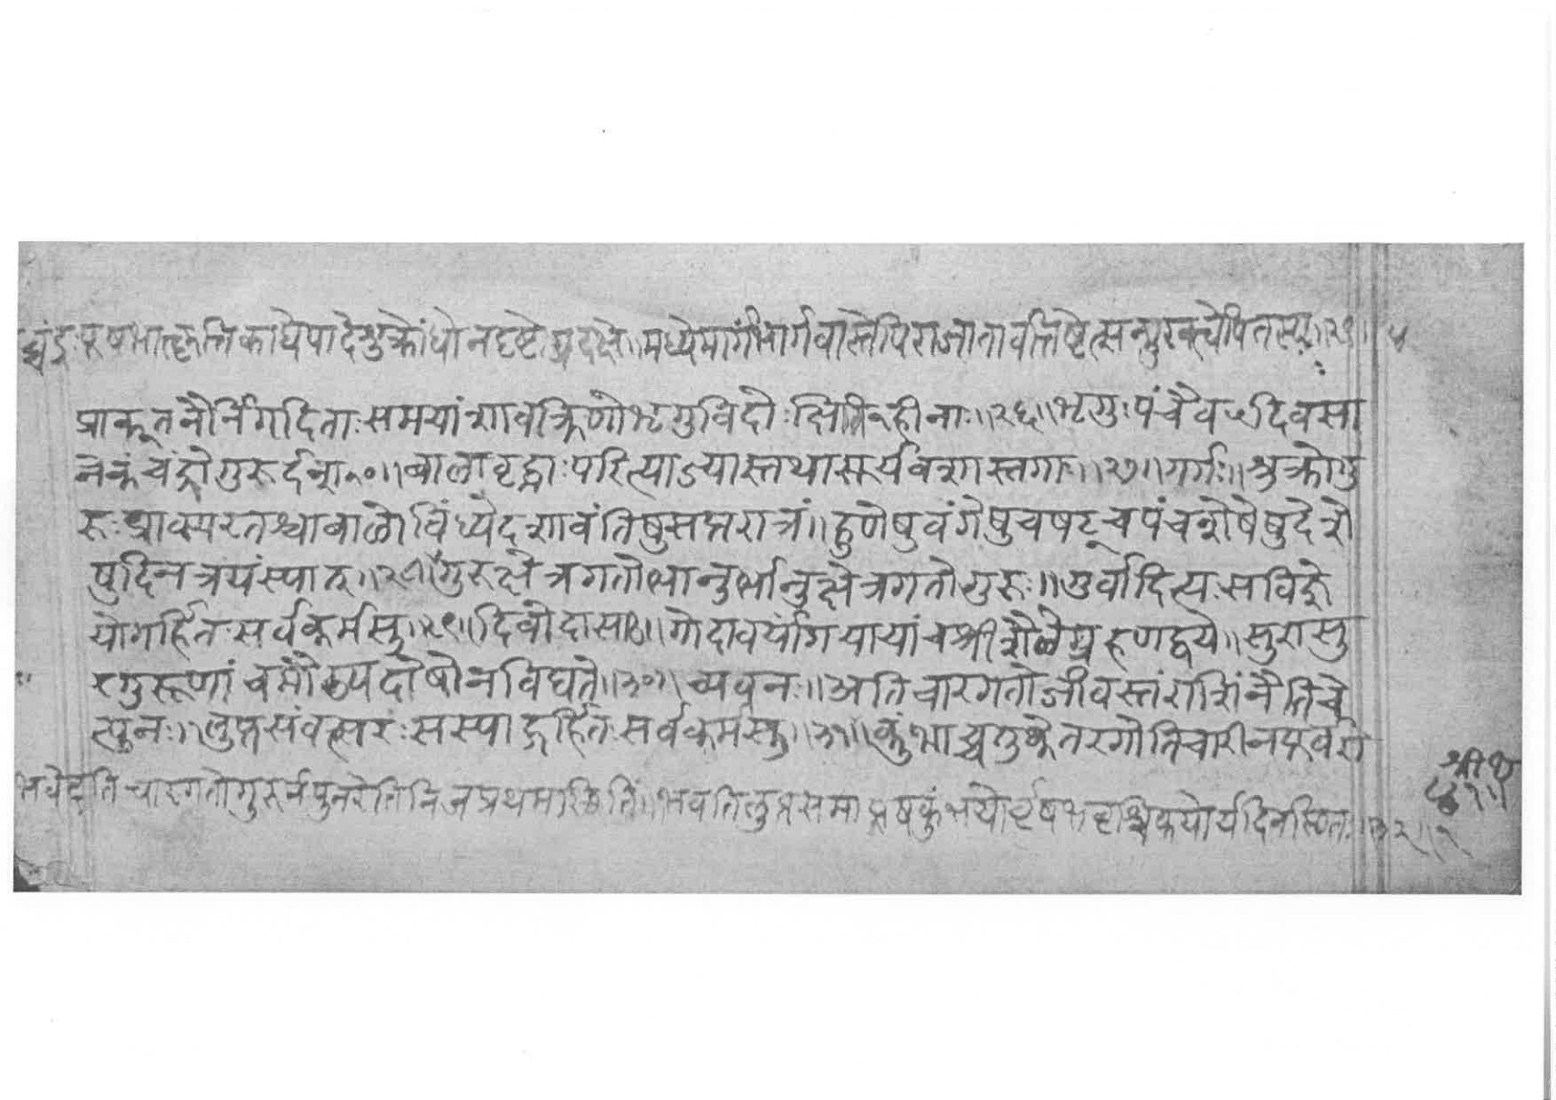 पूषभात्कृत्तिकाद्येपादेशुक्रोंधोनदृष्टे मध्येमार्गंभार्गवास्तेपिराजातावत्तिष्टेत्सन्मुरवत्वेपितस्य ५
प्राक्तनैर्निगदिताःसमयांशावक्रिणोभृगुविदोःक्षितिहीनाः॥२६॥भृगुःपंचैवदिवसा
गुरूर्दश॥बालावृद्धाःपरित्याज्यास्तथासूर्यवशास्तगाः॥२७॥गर्गः॥शुक्रोगु
रुःप्राक्परतश्चबाळोविंध्येदशावंतिषुसप्तरात्रं॥हूणेषुवंगेषुचषट्चपंचशेषेषुदेशे
षुदिनत्रयंस्यात्॥२८॥गुरुक्षेत्रगतोभानुर्भानुक्षेत्रगतोगुरुः॥गुर्वादित्यःसविज्ञे
योगर्हितःसर्वकर्मसु॥२९॥दिवोदासः॥गोदावर्यांगयायांचश्रीशैळेग्रहणद्वये॥सुरासु
रगुरूणांचमौढ्यदोषोनविद्यते॥३०॥च्यवनः॥अतिचारगतोजीवस्तंराशिंनैतिचे
त्पुनः॥लुप्तसंवत्सरःसस्याद्गर्हितःसर्वकर्मसु॥३१॥कुंभाच्चतुष्केतरगोतिचारीनपूर्वरा
भवेदतिचारगतोगुरुर्नपुनरेतिनिजप्रथमास्थितिं॥भवतिलुप्तसमाझषकुंभयोर्वृषभवृश्चिकयोर्यदिनस्थितः॥३२॥